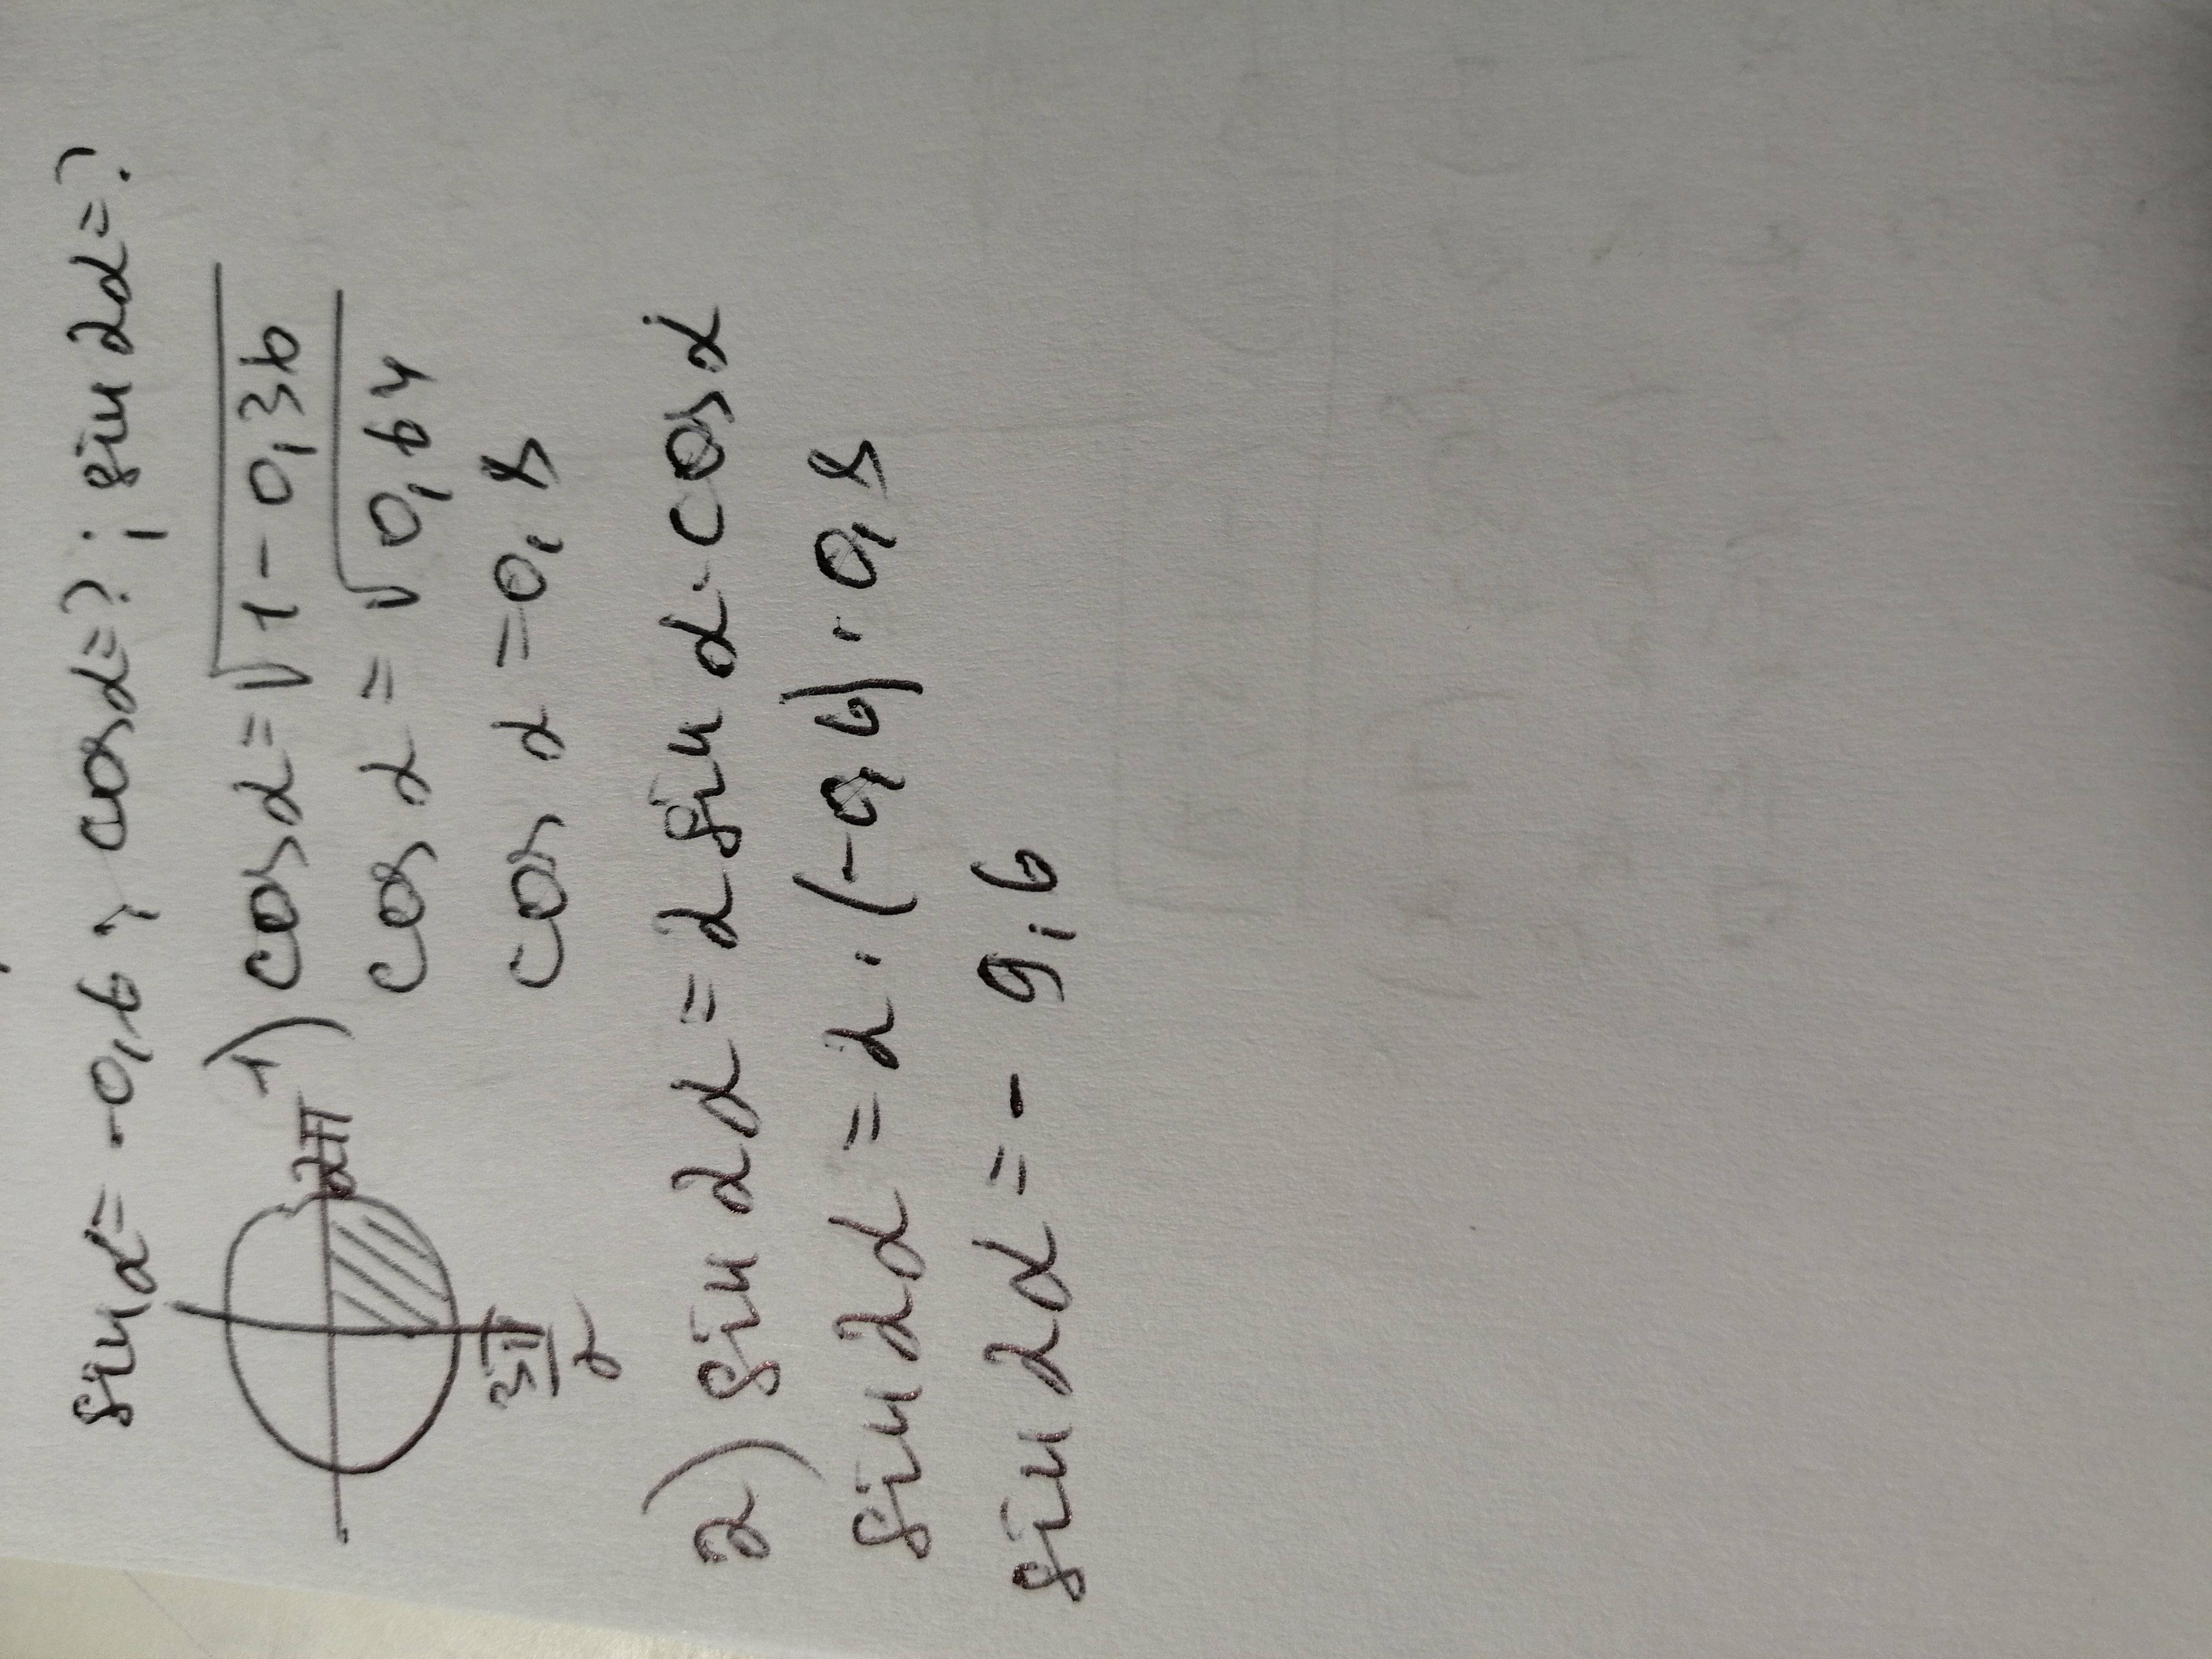 sin α = -0,6; cos α = ?; sin 2α = ?
2π
3π/2
1) cos α = √1-0,36
cos α = √0,64
cos α = 0,8
2) sin 2α = 2 sin α · cos α
sin 2α = 2 · (-0,6) · 0,8
sin 2α = - 9,6